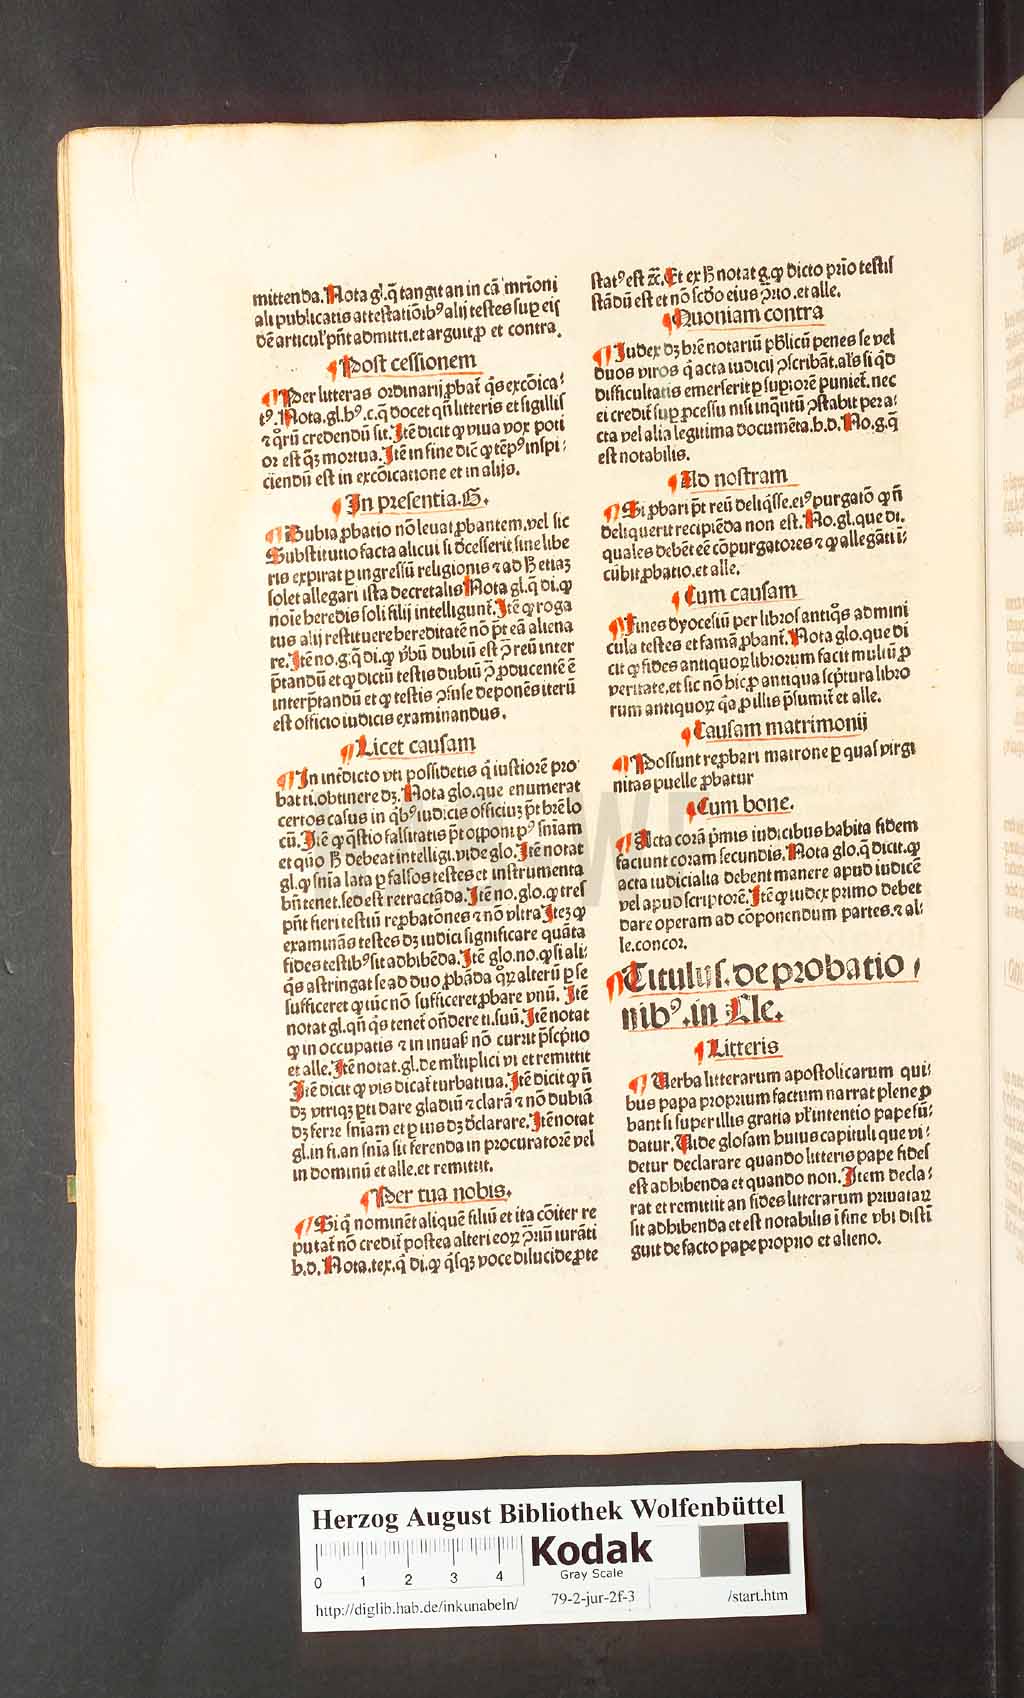 mittenda. Nota gl. q̄ tangit an in cā mr̄ioni
ali publicatis attestatiōibꝰ alij testes suꝑ eis
dē articul' pn̄t admitti. et arguit ꝓ et contra.
¶ Post cessionem
¶ Per litteras ordinarij ꝓbat̄ q̄s excōica⸗
tꝰ. Nota. gl. bꝰ. c. q̄ docet qn̄ litteris et sigillis
⁊ q̄rū credendū sit. Itē dicit ꝙ viua vox poti
or est q̄ꝫ mortua. Itē in fine dic̄ ꝙ tēpꝰ inspi⸗
ciendū est in excōicatione et in alijs.
¶ In presentia. G.
¶ Dubia ꝓbatio nō leuat ꝓbantem, vel sic
Substitutio facta alicui si d̄cesserit sine libe
ris expirat ꝑ ingressū religionis ⁊ ad ꝧ etiaꝫ
solet allegari ista decretalis Nota gl. q̄ di. ꝙ
noīe heredis soli filij intelligunt̄. Itē ꝙ roga
tus alij restituere hereditatē nō p̄t eā aliena
re. Itē no. g. q̄ di. ꝙ v̄bū dubiū est ꝯ reū inter
p̄tandū et ꝙ dictū testis dubiū ꝯ ꝓducentē ē
interp̄tandū et ꝙ testis ꝯfuse deponēs iterū
est officio iudicis examinandus.
¶ Licet causam
¶ In int̄dicto vti possidetis q̄ iustiorē pro
bat ti. obtinere dꝫ. Nota glo. que enumerat
certos casus in q̄bꝰ iudicis officiuꝫ p̄t br̄e lo
cū. Itē ꝙ q̄stio falsitatis p̄t opponi pꝰ sn̄iam
et quō ꝧ debeat intelligi. vide glo. Itē notat
gl. ꝙ sn̄ia lata ꝑ falsos testes et instrumenta
bn̄ tenet. sed est retractāda. Itē no. glo. ꝙ tres
pn̄t fieri testiū reꝓbatōnes ⁊ nō vltra Iteꝫ ꝙ
examinās testes dꝫ iudici significare quāta
fides testibꝰ sit adhibēda. Itē glo. no. ꝙ si ali⸗
q̄s astringat se ad duo ꝓbāda q̄ꝝ alterū ꝑ se
sufficeret ꝙ tūc nō sufficeret ꝓbare vnū. Itē
notat gl. qn̄ q̄s tenet̄ on̄dere ti. suū. Itē notat
ꝙ in occupatis ⁊ in inuas̄ nō currit p̄scp̄tio
et alle. Itē notat. gl. de ml̄tiplici vi et remittit
Itē dicit ꝙ vis dicat̄ turbatiua. Itē dicit ꝙ n̄
dꝫ vtriqꝫ ꝑti dare gladiū ⁊ clarā ⁊ nō dubiā
dꝫ ferre sn̄iam et ꝑ ius dꝫ d̄clarare. Itē notat
gl. in fi. an sn̄ia sit ferenda in procuratorē vel
in dominū et alle. et remittit.
¶ Per tua nobis.
¶ Si q̄ nominēt aliquē filiū et ita cōiter re
putat̄ nō credit̄ postea alteri eoꝝ ꝯriū iurāti
h. d. Nota. tex. q̄ di. ꝙ q̄sqꝫ voce dilucide ꝓte
statꝰ est ⁊c̄. Et ex ꝧ notat g. ꝙ dicto pr̄io testis
stādū est et nō scd̄o eius ꝯrio. et alle.
¶ Quoniam contra
¶ Iudex dꝫ hr̄e notariū pb̄licū penes se vel
duos viros q̄ acta iudicij ꝯscribāt. al's si q̄d
difficultatis emerserit ꝑ supiorē puniet̄. nec
ei credit̄ suꝑ ꝓcessu nisi inq̄ntū ꝯstabit per a⸗
cta vel alia legitima documēta. h. d. No. g. q̄
est notabilis.
¶ Ad nostram
¶ Si ꝓbari p̄t reū deliq̄sse. eiꝰ purgatō ꝙ n̄
deliquerit recipiēda non est. No. gl. que di.
quales debēt eē cōpurgatores ⁊ ꝙ allegāti ī⸗
cūbit ꝓbatio. et alle.
¶ Cum causam
¶ Fines dyocesiū per libros antiq̄s admini
cula testes et famā ꝓbant̄. Nota glo. que di
cit ꝙ fides antiquoꝝ librorum facit multū ꝓ
veritate, et sic nō hic ꝓ antiqua scp̄tura libro
rum antiquoꝝ q̄a ꝓ illis p̄sumit̄ et alle.
¶ Causam matrimonii
¶ Possunt reꝓbari matrone ꝑ quas virgi
nitas puelle ꝓbatur
¶ Cum bone.
¶ Acta corā p̄mis iudicibus habita fidem
faciunt coram secundis. Nota glo. q̄ dicit. ꝙ
acta iudicialia debent manere apud iudicē
vel apud scriptorē. Itē ꝙ iudex primo debet
dare operam ad cōponendum partes. ⁊ al⸗
le. concor.
¶ Titulus. de probatio⸗
nibꝰ. in Cle.
¶ Litteris
¶ Verba litterarum apostolicarum qui⸗
bus papa proprium factum narrat plene ꝓ
bant si super illis gratia vl' intentio pape fū⸗
datur. Vide glosam huius capituli que vi⸗
detur declarare quando litteris pape fides
est adhibenda et quando non. Item decla⸗
rat et remittit an fides litterarum priuataꝝ
sit adhibenda et est notabilis ī fine vbi disti
guit de facto pape proprio et alieno.
Herzog August Bibliothek Wolfenbüttel
Kodak
Gray Scale
0 1 2 3 4
http://diglib.hab.de/inkunabeln/ 79-2-jur-2f-3 /start.htm